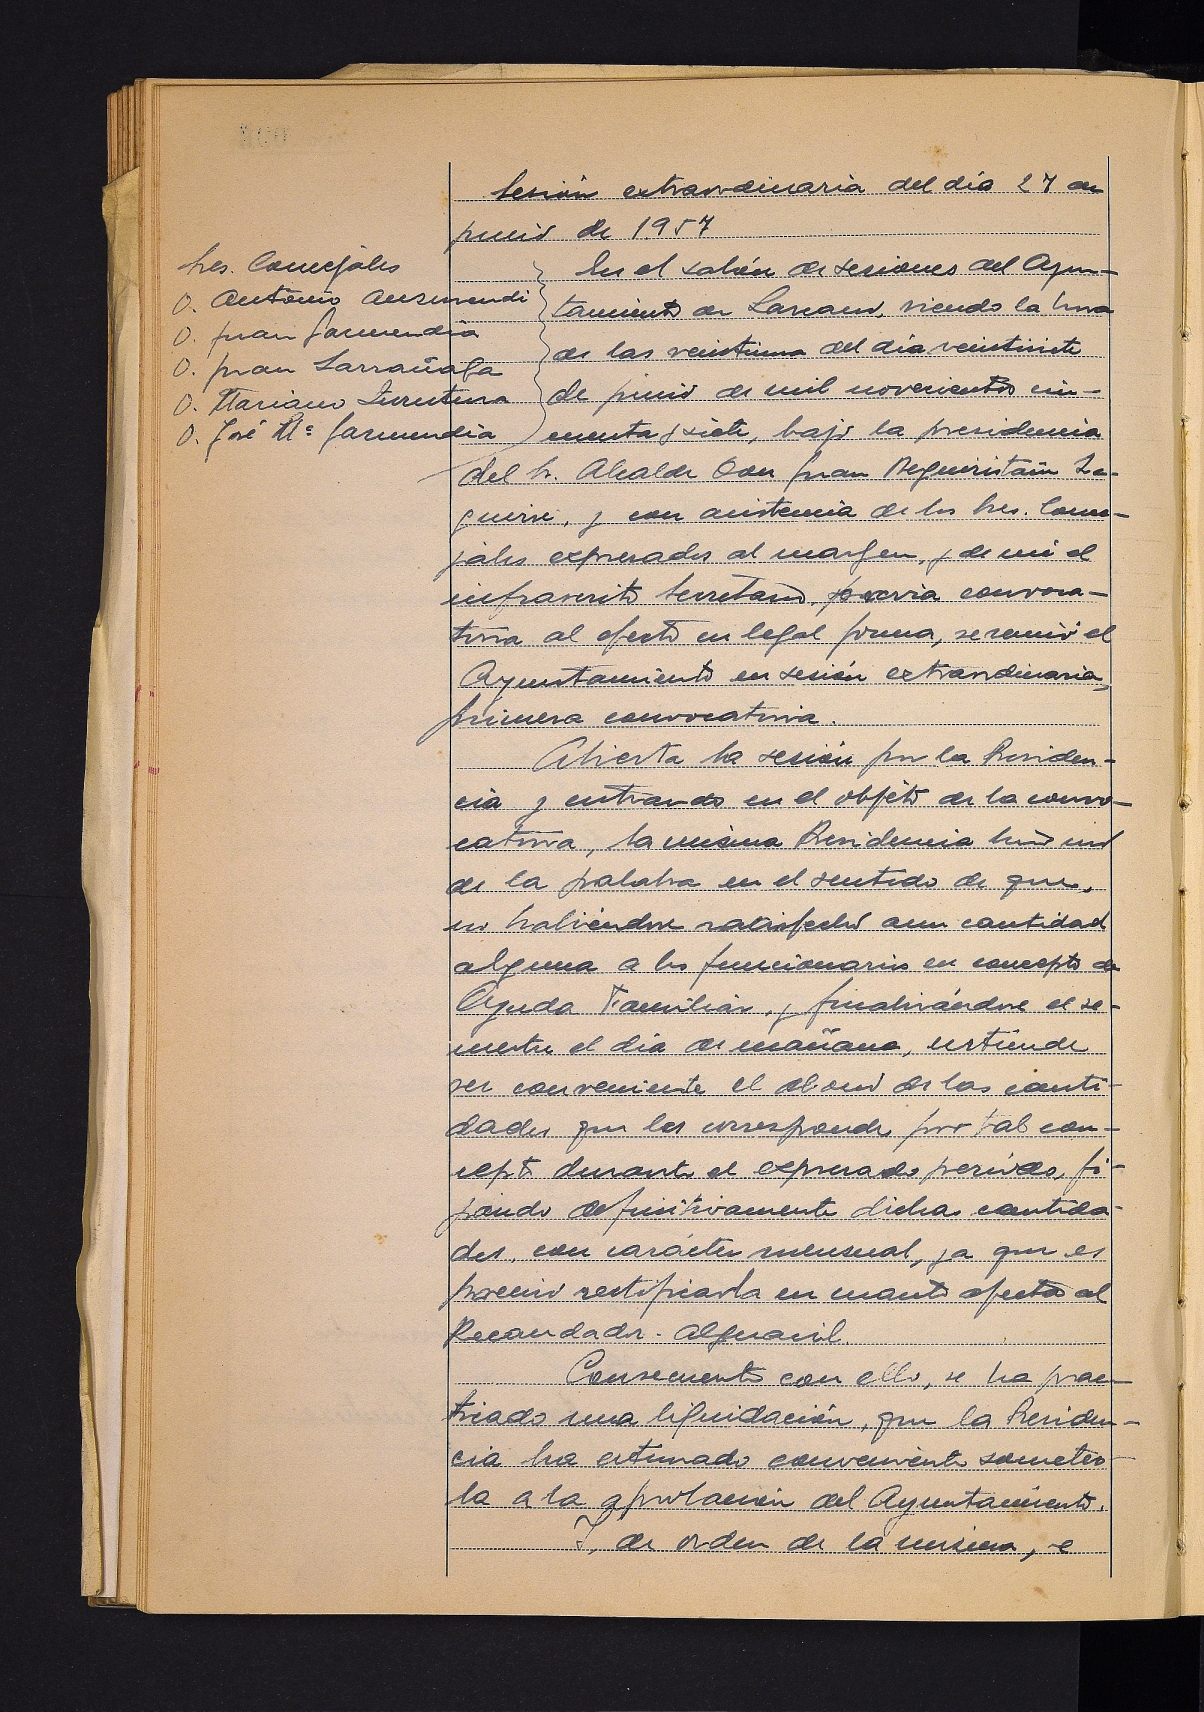 Sesión extraordinaria del día 27 de
junio de 1957
Sres. Concejales
D. Antonio Aurmendi
D. Juan Garmendia
D. Juan Larrañaga
D. Mariano
D. José Mª Garmendia
En el salón de sesiones del Ayun-
tamiento de Lazcano, siendo la hora
de las veintiuna del día veintisiete
de junio de mil novecientos cin-
cuenta y siete, bajo la presidencia
del Sr. Alcalde Don Juan Reguiristain La-
guirre, y con asistencia de los Sres. Conce-
jales expresados al margen, y de mi el
infrascrito Secretario, previa convoca-
toria al efecto en legal forma, se reunió el
Ayuntamiento en sesión extraordinaria,
primera convocatoria.
Abierta la sesión por la Presiden-
cia y entrando en el objeto de la convo-
catoria, la misma Presidencia hizo uso
de la palabra en el sentido de que,
no habiéndose satisfecho aun cantidad
alguna a los funcionarios en concepto de
Ayuda Familiar, y finalizándose el se-
mestre el día de mañana, entiende
ser conveniente el abono de las canti-
dades que les corresponde por tal con-
cepto durante el expresado período, fi-
jando definitivamente dichas cantida-
des, con carácter mensual, ya que es
preciso rectificarla en cuanto afecta al
Recaudador-Alguacil.
Consecuente con ello, se ha prac-
ticado una liquidación, que la Presiden-
cia ha estimado conveniente someter-
la a la aprobación del Ayuntamiento.
Y, de orden de la misma, e